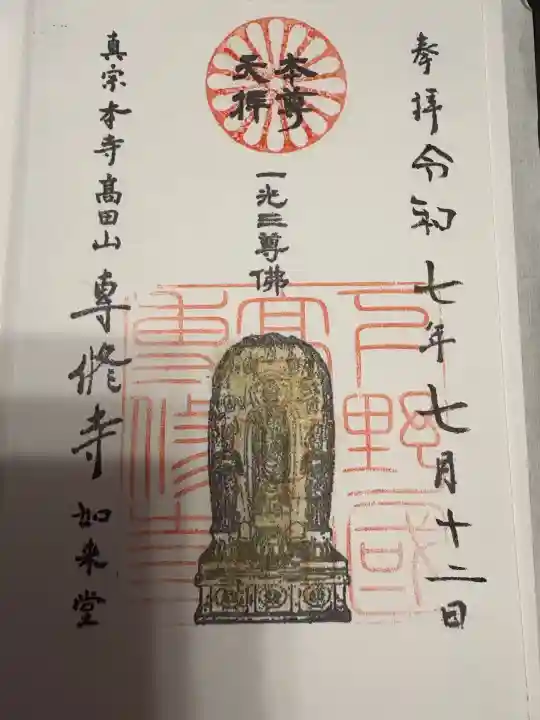 奉拝 令和七年七月十二日
本尊
天拝
一光三尊佛
下野國
高
専修寺
真宗本寺高田山専修寺如来堂